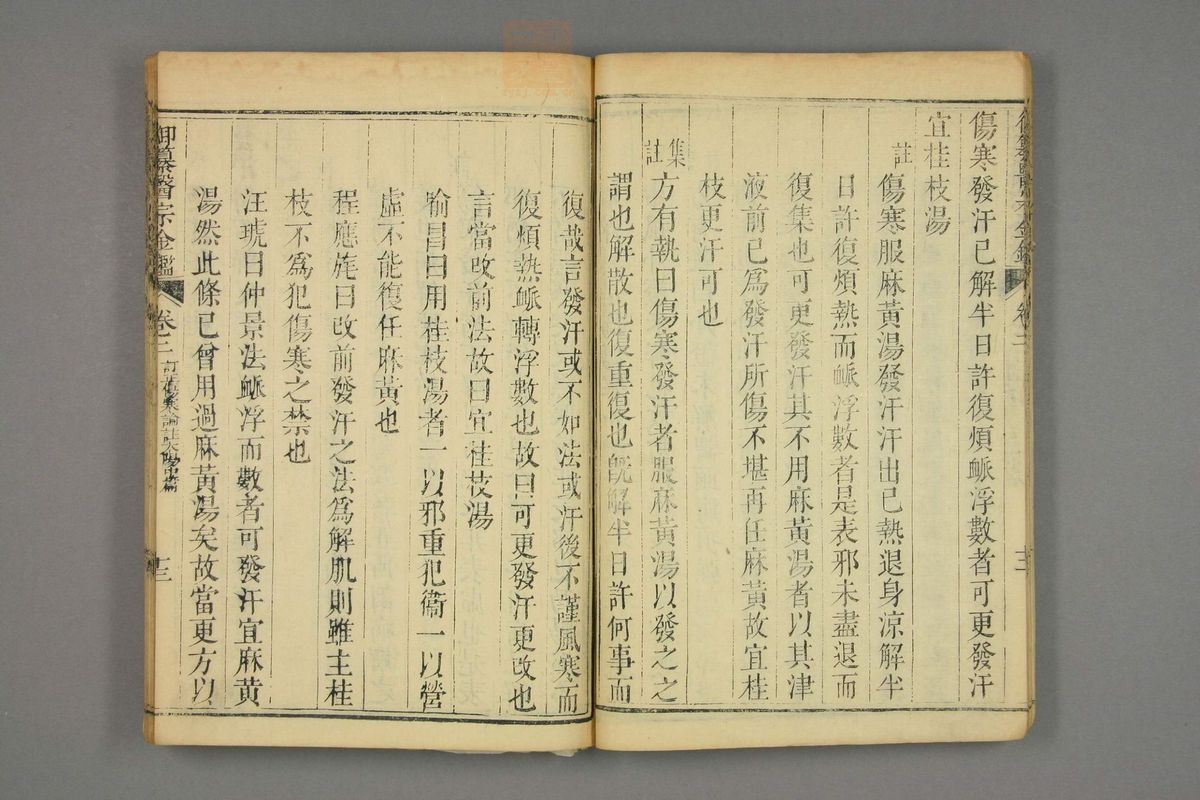 傷寒發汗已解半日許復煩脈浮數者可更發汗
宜桂枝湯
註
傷寒服麻黃湯發汗汗出已熱退身涼解半
日許復煩熱而脈浮數者是表邪未盡退而
復集也可更發汗其不用麻黃湯者以其津
液前已爲發汗所傷不堪再任麻黃故宜桂
枝更汗可也
集註
方有執曰傷寒發汗者服麻黃湯以發之之
謂也解散也復重復也旣解半日許何事而
復哉言發汗或不如法或汗後不謹風寒而
復煩熱脈轉浮數也故曰可更發汗更改也
言當改前法故曰宜桂枝湯
喻昌曰用桂枝湯者一以邪重犯衞一以營
虛不能復任麻黃也
程應旄曰改前發汗之法爲解肌則雖主桂
枝不爲犯傷寒之禁也
汪琥曰仲景法脈浮而數者可發汗宜麻黃
湯然此條已曾用過麻黃湯矣故當更方以
御纂醫宗金鑑
卷三
訂正傷寒論註太陽中篇
十三